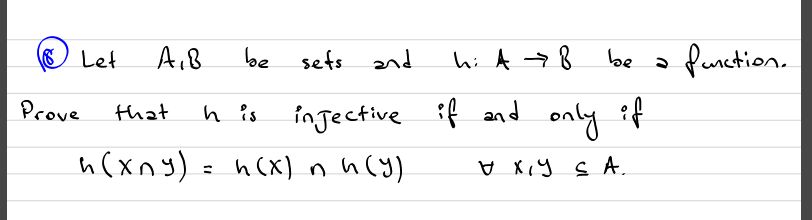 ⑧ Let A,B be sets and h: A → B be a function.
Prove that h is injective if and only if
h(x∩y) = h(x) ∩ h(y) ∀ x,y ⊆ A.